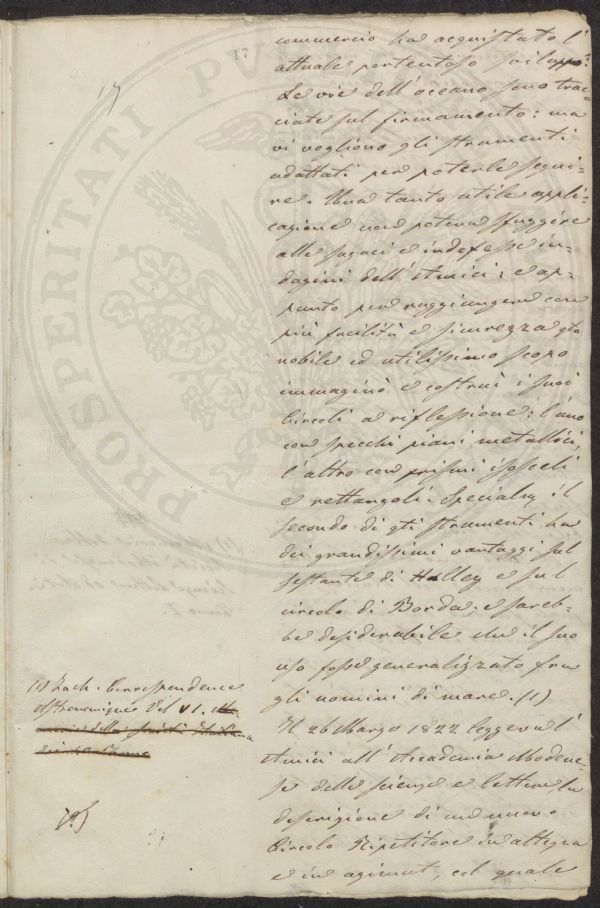 17
17
commercio ha acquistato l'
attuale portentoso sviluppo.
Le vie dell'oceano sono trac-
ciate sul firmamento: ma
vi vogliono gli strumenti
adattati per poterle segui-
re. Una tanto utile appli-
cazione non poteva sfuggire
alle sagaci e indefesse in-
dagini dell'Amici; e ap-
punto per raggiungere con
più facilità e sicurezza qto
nobile ed utilissimo scopo
immaginò e costruì i suoi
Circoli a riflessione: l'uno
con specchi piani metallici,
l'altro con prismi isosceli
e rettangoli. Specialm. il
secondo di qti strumenti ha
dei grandissimi vantaggi sul
sestante di Halley e sul
circolo di Borda: e sareb-
be desiderabile che il suo
uso fosse generalizzato fra
gli uomini di mare. (1)
Il 26 Marzo 1822 leggeva l'
Amici all'Accademia Modene-
se delle scienze e lettere la
descrizione di un nuovo
Circolo Ripetitore in altezza
e in azimut, col quale
(1) Zach. Correspondence
Astronomique Vol VI.
della Società Italiana
PROSPERITATI PV